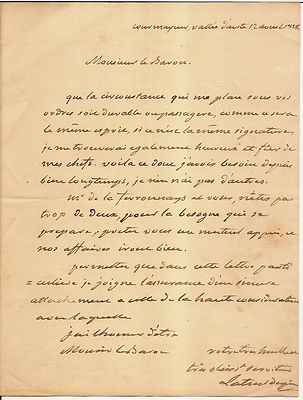 courmayeur, vallée d'aoste 12 avril 1828.
Monsieur le Baron.
que la circonstance qui me place sous vos
ordres soit durable ou passagère, comme ce sera
le même esprit, si ce n'est la même signature,
je me trouverai également heureux et fier de
mes chefs. voilà ce dont j'avois besoin depuis
bien longtemps, je n'en n'ai pas d'autres.
Mr de la ferronnays et vous, n'êtes pas
trop de deux, pour la besogne qui se
prépare, prêter vous un mutuel appui, et
nos affaires iront bien.
permettez que dans cette lettre parti
=culière je joigne l'assurance d'un sincère
attachement à celle de la haute considération
avec laquelle
j'ai l'honneur d'être
Monsieur le Baron
votre très humble
très obéisst serviteur